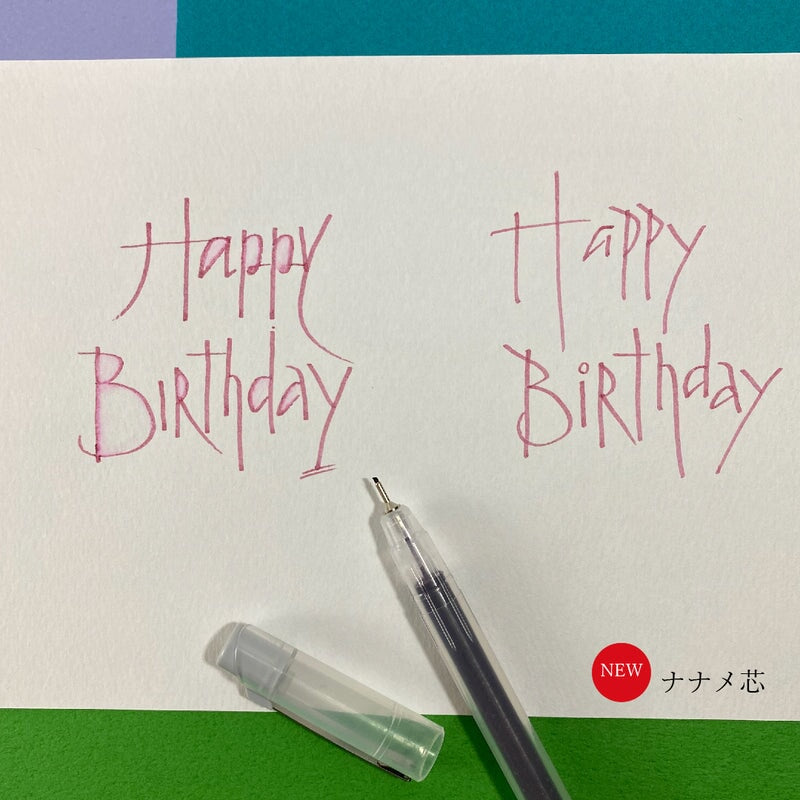 Happy
Birthday
Happy
Birthday
NEW ナナメ芯